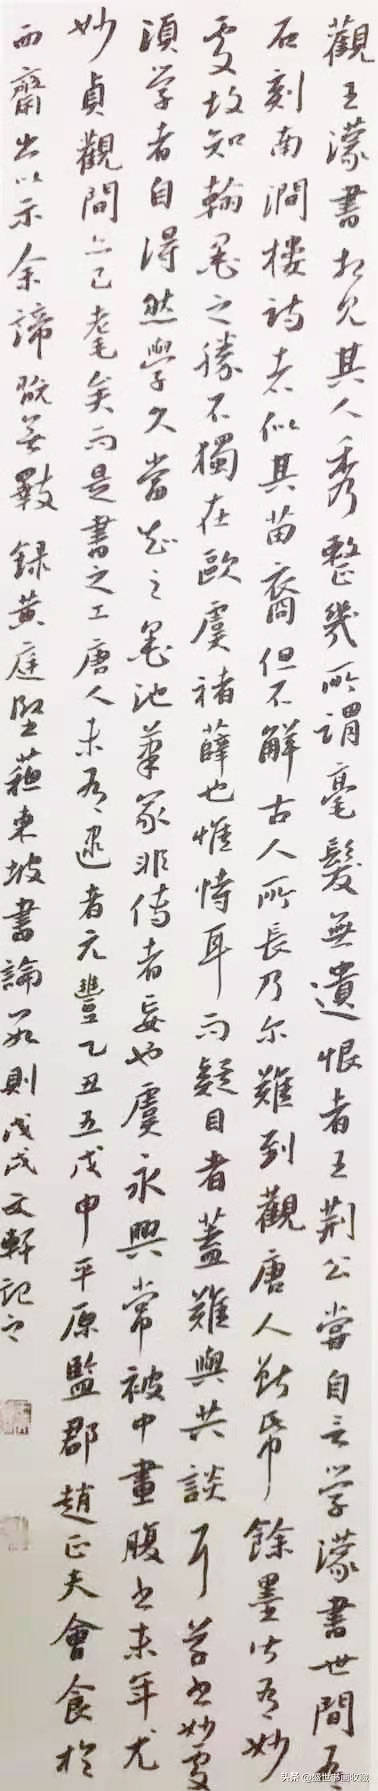 觀王濛書想見其人秀整幾所謂毫髮無遺恨者王荊公嘗自言学濛書世間有
石刻南澗樓詩者似其苗裔但不解古人所長乃尔難到觀唐人斷帋餘墨皆有妙
處故知翰墨之勝不獨在歐虞褚薛也惟恃耳而疑目者蓋難與共談耳学書妙處
須学者自得然學久當知之墨池筆冢非傳者妄也虞永興常被中畫腹書末年尤
妙貞觀間亦已耄矣而是書之工唐人未有逮者元豐乙丑五戊申平原監郡趙正夫會食於
西齋出以示余諦玩無斁 録黄庭堅蘇東坡書論數則戊戌文軒記之
头条 @盛世书画收藏